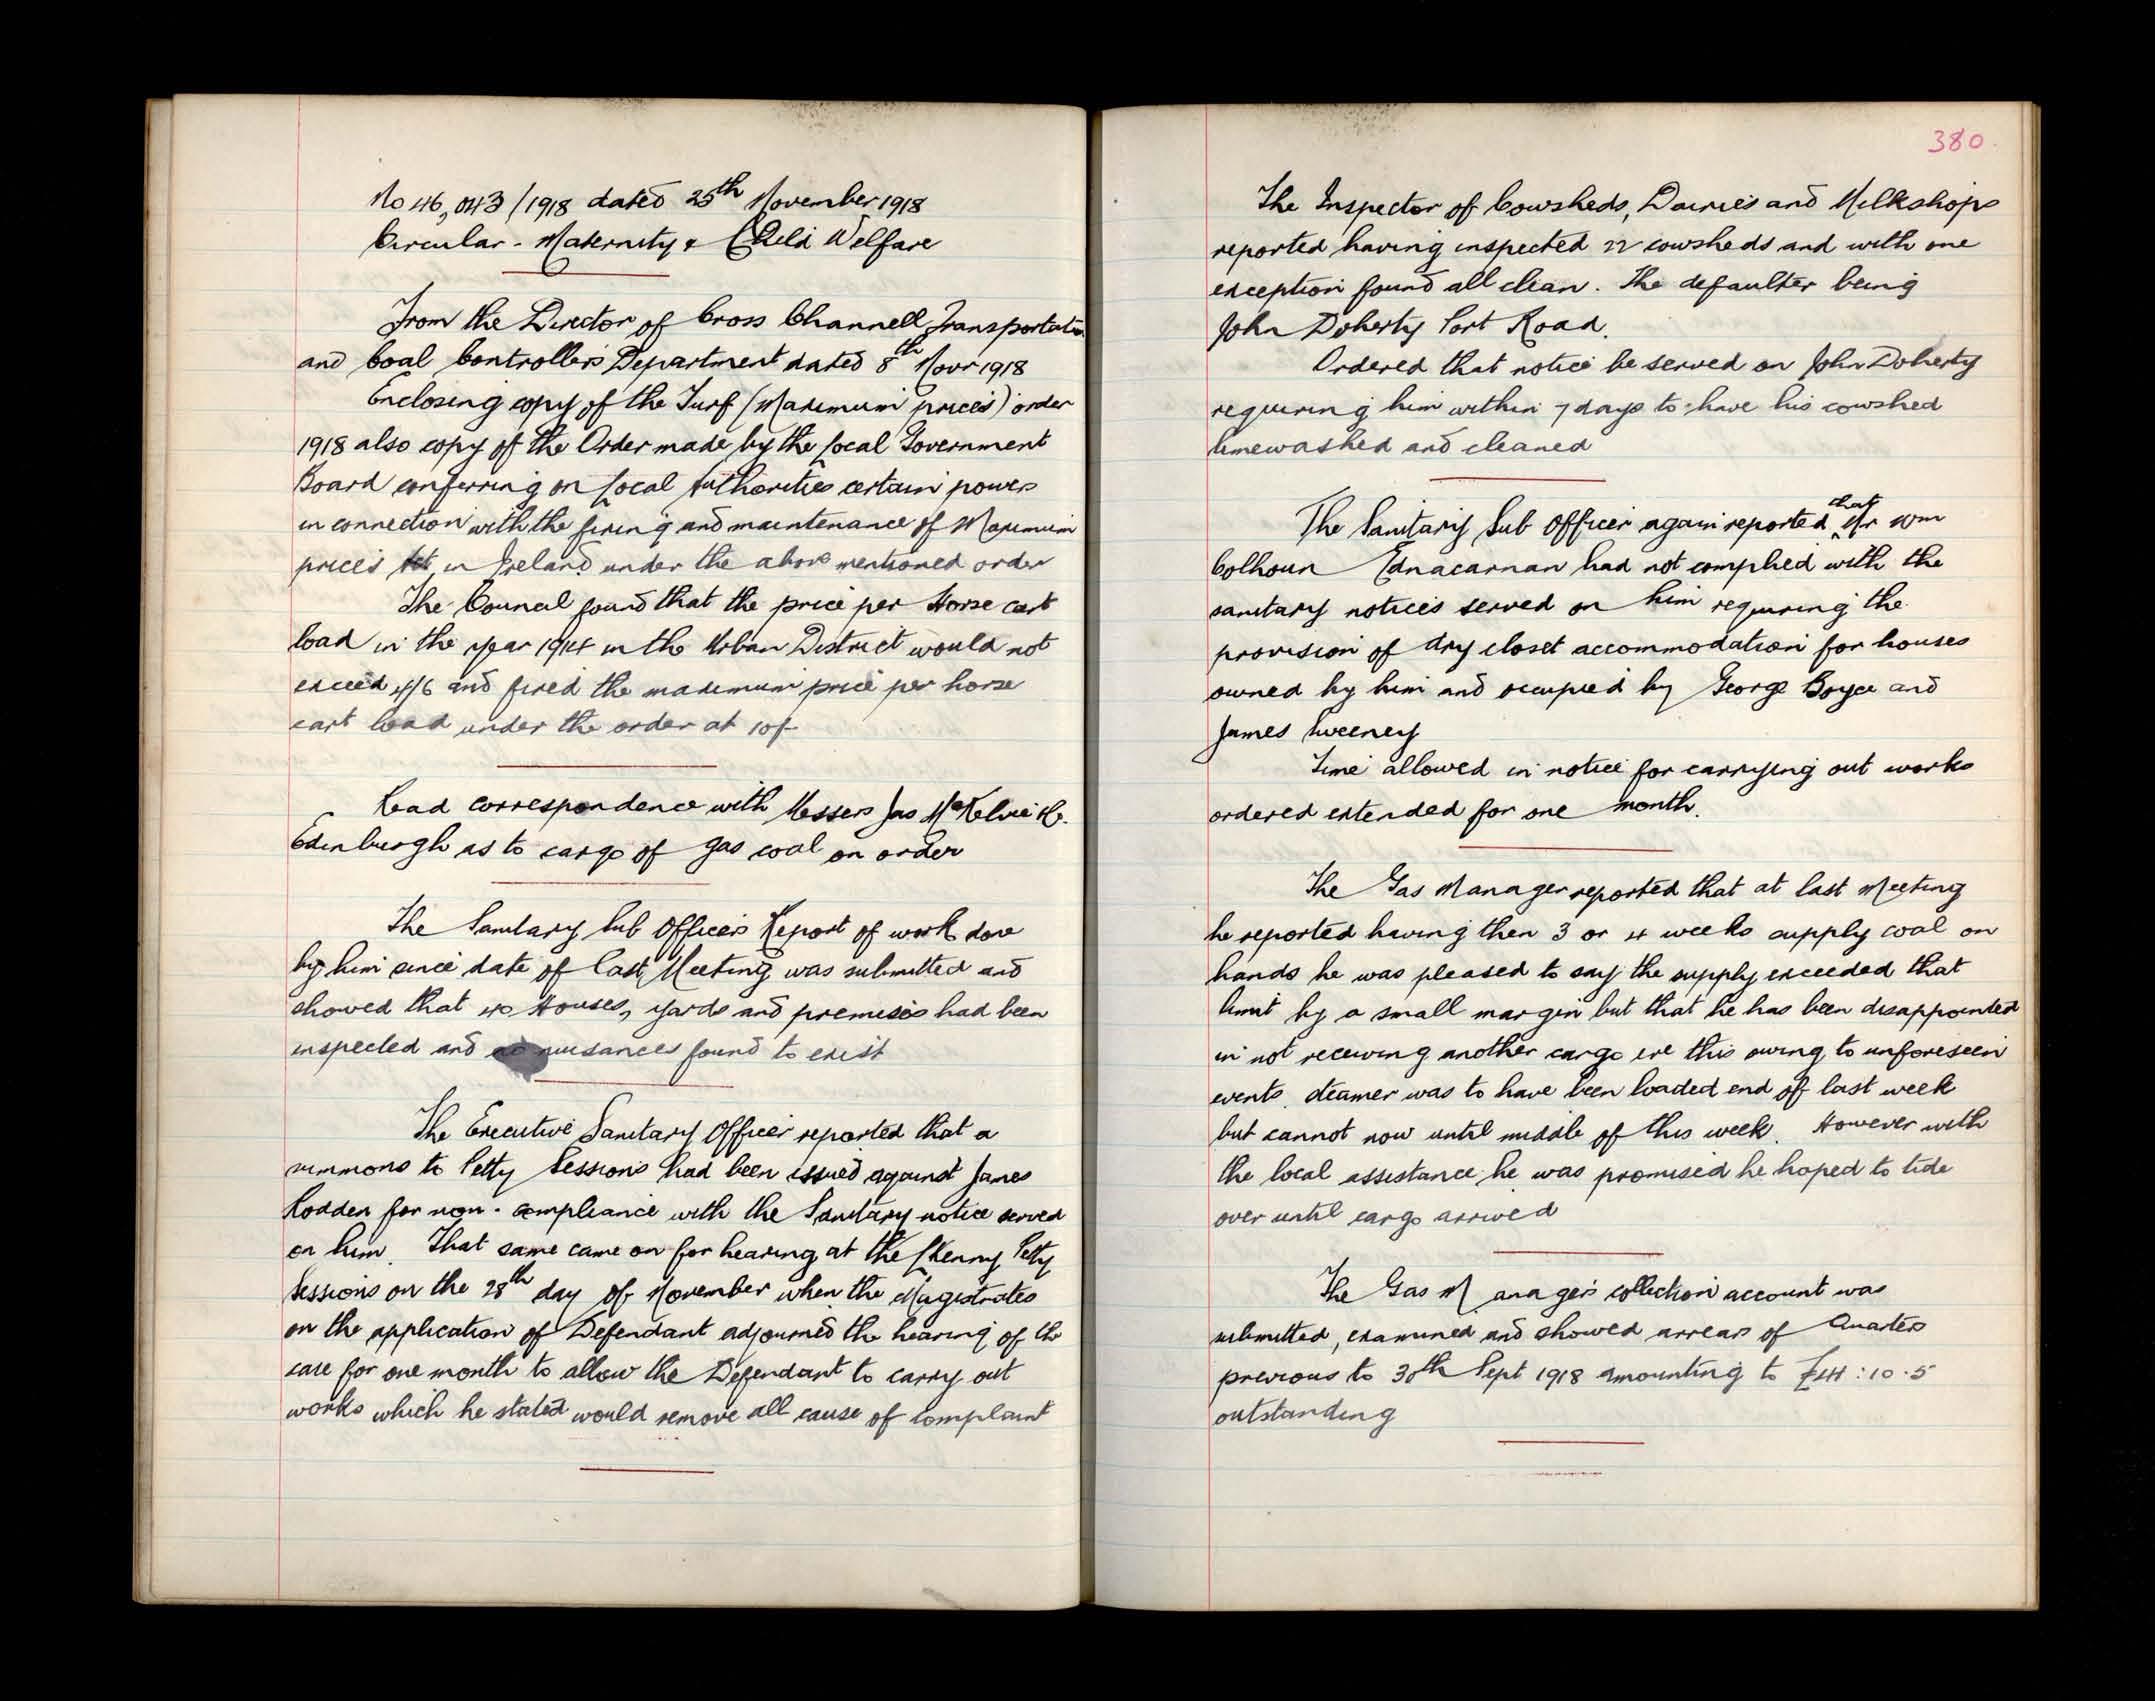 No 46,043/1918 dated 25th November 1918
Circular - Maternity & Child Welfare
From the Director of Cross Channell Transportation
and Coal Controllers Department dated 8th Novr 1918
Enclosing copy of the Turf (Maximum prices) order
1918 also copy of the Order made by the Local Government
Board conferring on Local Authorities certain powers
in connection with the fixing and maintenance of Maximum
prices in Ireland under the above mentioned order
The Council found that the price per Horse cart
load in the year 1914 in the Urban District would not
exceed 4/6 and fixed the maximum price per horse
cart load under the order at 10/-
Read correspondence with Messers Jas McKelvie &
Edinburgh as to cargo of gas coal on order
The Sanitary Sub Officers Report of work done
by him since date of last Meeting was submitted and
showed that 40 Houses, yards and premises had been
inspected and no nuisances found to exist
The Executive Sanitary Officer reported that a
summons to Petty Sessions had been issued against James
Rodden for non-compliance with the Sanitary notice served
on him. That same came on for hearing at the LKenny Petty
Sessions on the 28th day of November when the Magistrates
on the application of Defendant adjourned the hearing of the
case for one month to allow the Defendant to carry out
works which he stated would remove all cause of complaint
380.
The Inspector of Cowsheds, Dairies and Milkshops
reported having inspected 22 cowsheds and with one
exception found all clean. The defaulter being
John Doherty Port Road.
Ordered that notice be served on John Doherty
requiring him within 7 days to have his cowshed
limewashed and cleaned
The Sanitary Sub Officer again reported that Mr Wm
Colhoun Ednacarnan had not complied with the
sanitary notices served on him requiring the
provision of dry closet accommodation for houses
owned by him and occupied by George Boyce and
James Sweeney
Time allowed in notice for carrying out works
ordered extended for one month.
The Gas Manager reported that at last Meeting
he reported having then 3 or 4 weeks supply coal on
hands he was pleased to say the supply exceeded that
limit by a small margin but that he has been disappointed
in not receiving another cargo ere this owing to unforeseen
events. steamer was to have been loaded end of last week
but cannot now until middle of this week. However with
the local assistance he was promised he hoped to tide
over until cargo arrived
The Gas Manager's collection account was
submitted, examined and showed arrears of Quarters
previous to 30th Sept 1918 amounting to :10.5
outstanding